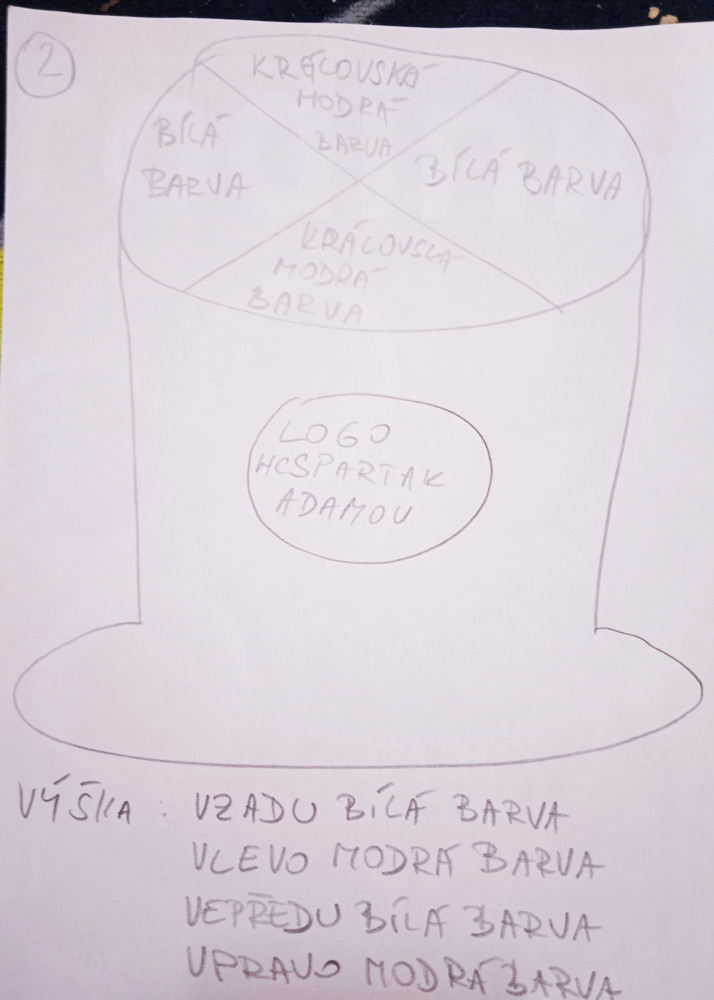 2
KRÁLOVSKÁ
MODRÁ
BARVA
BÍLÁ
BARVA
BÍLÁ BARVA
KRÁLOVSKÁ
MODRÁ
BARVA
LOGO
HCSPARTAK
ADAMOV
VÝŠKA : VZADU BÍLÁ BARVA
VLEVO MODRÁ BARVA
VEPŘEDU BÍLÁ BARVA
VPRAVO MODRÁ BARVA